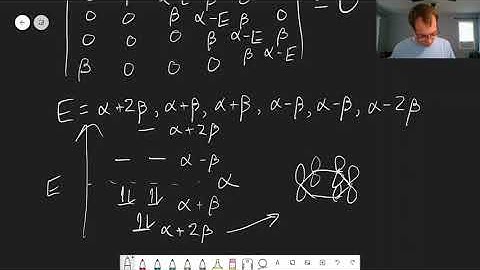 0 0 β α-E β 0
0 0 0 β α-E β
β 0 0 0 β α-E
= 0
E = α+2β, α+β, α+β, α-β, α-β, α-2β
α+2β
α-β
α
E
α+β
α+2β